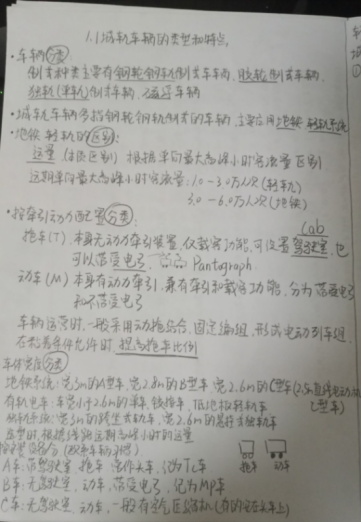 1.1 城轨车辆的类型和特点
·车辆分类
制式种类主要有钢轮钢轨制式车车辆、胶轮制式车辆、
独轨(单轨)制式车辆、磁浮车辆
·城轨车辆多指钢轮钢轨制式的车辆,主要应用地铁 轻轨系统
·地铁 轻轨的区别:
运量(主要区别) 根据单向最大高峰小时客流量区别
远期单向最大高峰小时客流量:1.0-3.0万人次(轻轨)
3.0-6.0万人次(地铁)
·按牵引动力配置分类:
cab
拖车(T):本身无动力牵引装置,仅载客功能,可设置驾驶室,也
可以带受电弓, Pantograph
动车(M) 本身有动力牵引,兼有牵引和载客功能,分为带受电弓
和不带受电弓
车辆运营时,一般采用动拖结合,固定编组,形成电动列车组
在粘着条件允许时 提高拖车比例
车体宽度分类
地铁系统:宽3m的A型车,宽2.8m的B型车 宽2.6m的C型车
有轨电车:车宽小于2.6m的单车、铰接车、低地板轻轨车
拖车 动车
A车:带驾驶室 拖车 记为Tc车
B车:无驾驶室、动车、带受电弓、记为MP车
C车:无驾驶室 动车,一般有空气压缩机